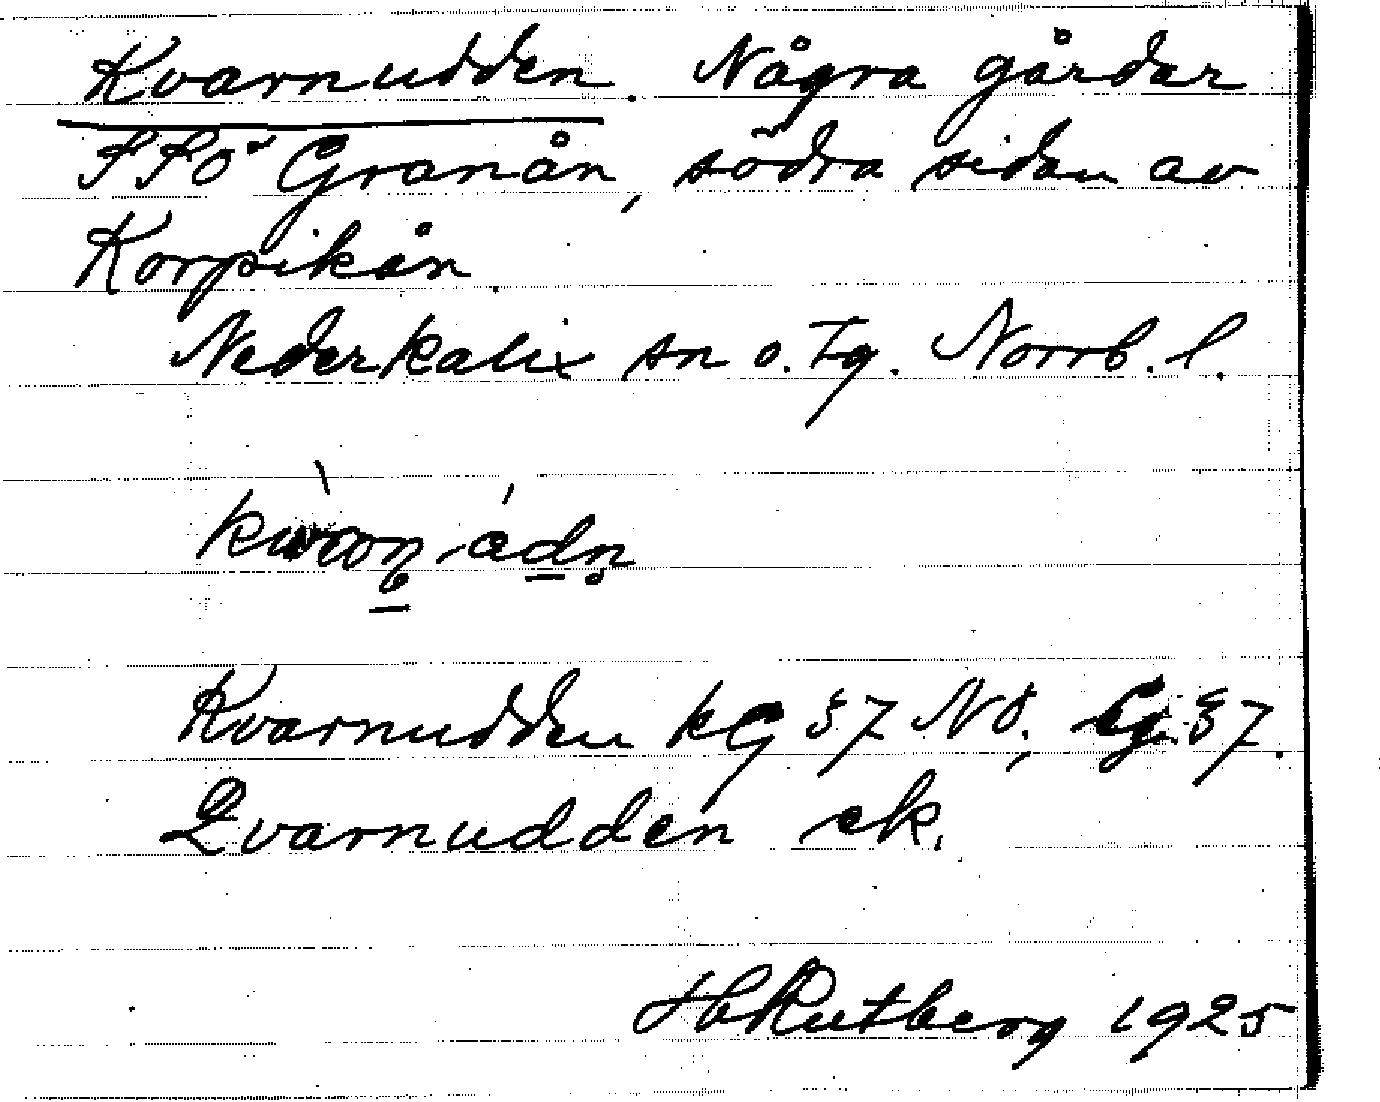 Kvarnudden. Några gårdar
SSÖ Granån, södra sidan av
Korpikån.
Nederkalix sn o. tg. Norrb. l.
Kvarnudden kG 37 NÖ; 37.
Qvarnudden ek.
H Rutberg 1925